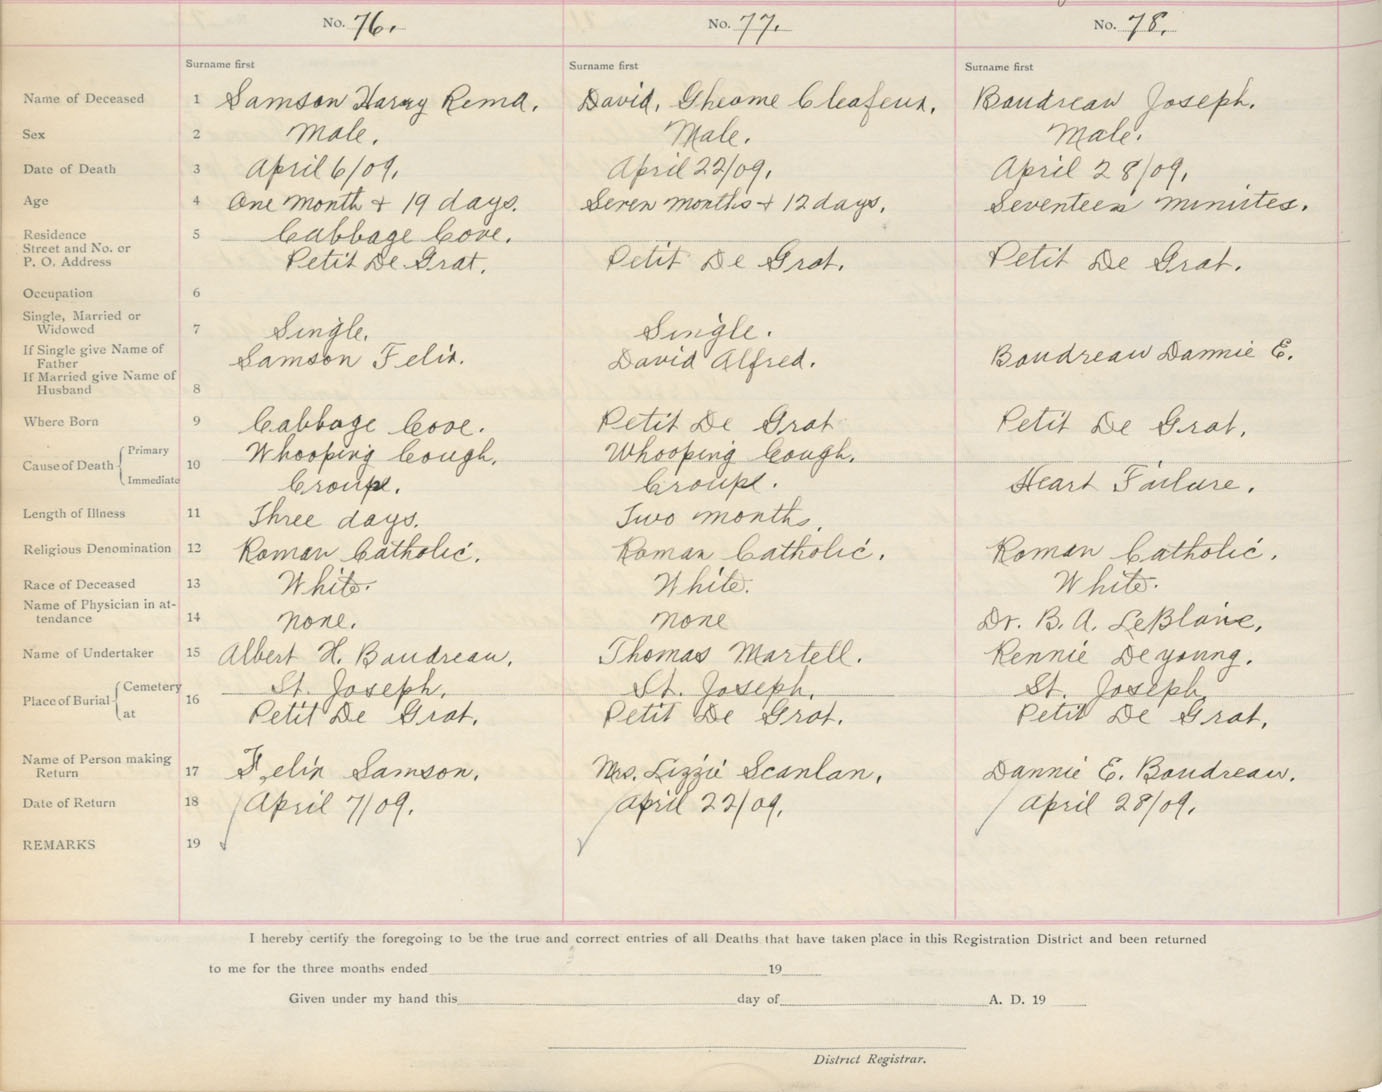 No. 76. No. 77. No. 78.
Surname first Surname first Surname first
Name of Deceased 1 Samson Harry Rema. David, Gheome Cleafeux. Boudreau Joseph.
Sex 2 Male. Male. Male.
Date of Death 3 April 6/09. April 22/09. April 28/09.
Age 4 One month + 19 days. Seven months + 12 days. Seventeen minutes.
Residence 5 Cabbage Cove.
Street and No. or
P. O. Address Petit De Grat. Petit De Grat. Petit De Grat.
Occupation 6
Single, Married or
Widowed 7 Single. Single.
If Single give Name of
Father Samson Felix. David Alfred. Boudreau Dannie E.
If Married give Name of
Husband 8
Where Born 9 Cabbage Cove. Petit De Grat Petit De Grat.
Cause of Death Primary 10 Whooping Cough. Whooping Cough.
Immediate Croupe. Croupe. Heart Failure.
Length of Illness 11 Three days. Two months.
Religious Denomination 12 Roman Catholic. Roman Catholic. Roman Catholic.
Race of Deceased 13 White. White. White.
Name of Physician in at-
tendance 14 none. none Dr. B. A. LeBlanc.
Name of Undertaker 15 Albert H. Boudreau. Thomas Martell. Rennie Deyoung.
Place of Burial Cemetery 16 St. Joseph. St. Joseph. St. Joseph
at Petit De Grat. Petit De Grat. Petit De Grat.
Name of Person making
Return 17 Felix Samson. Mrs. Lizzie Scanlan. Dannie E. Boudreau.
Date of Return 18 April 7/09. April 22/09. April 28/09.
REMARKS 19
I hereby certify the foregoing to be the true and correct entries of all Deaths that have taken place in this Registration District and been returned
to me for the three months ended 19
Given under my hand this day of A. D. 19
District Registrar.